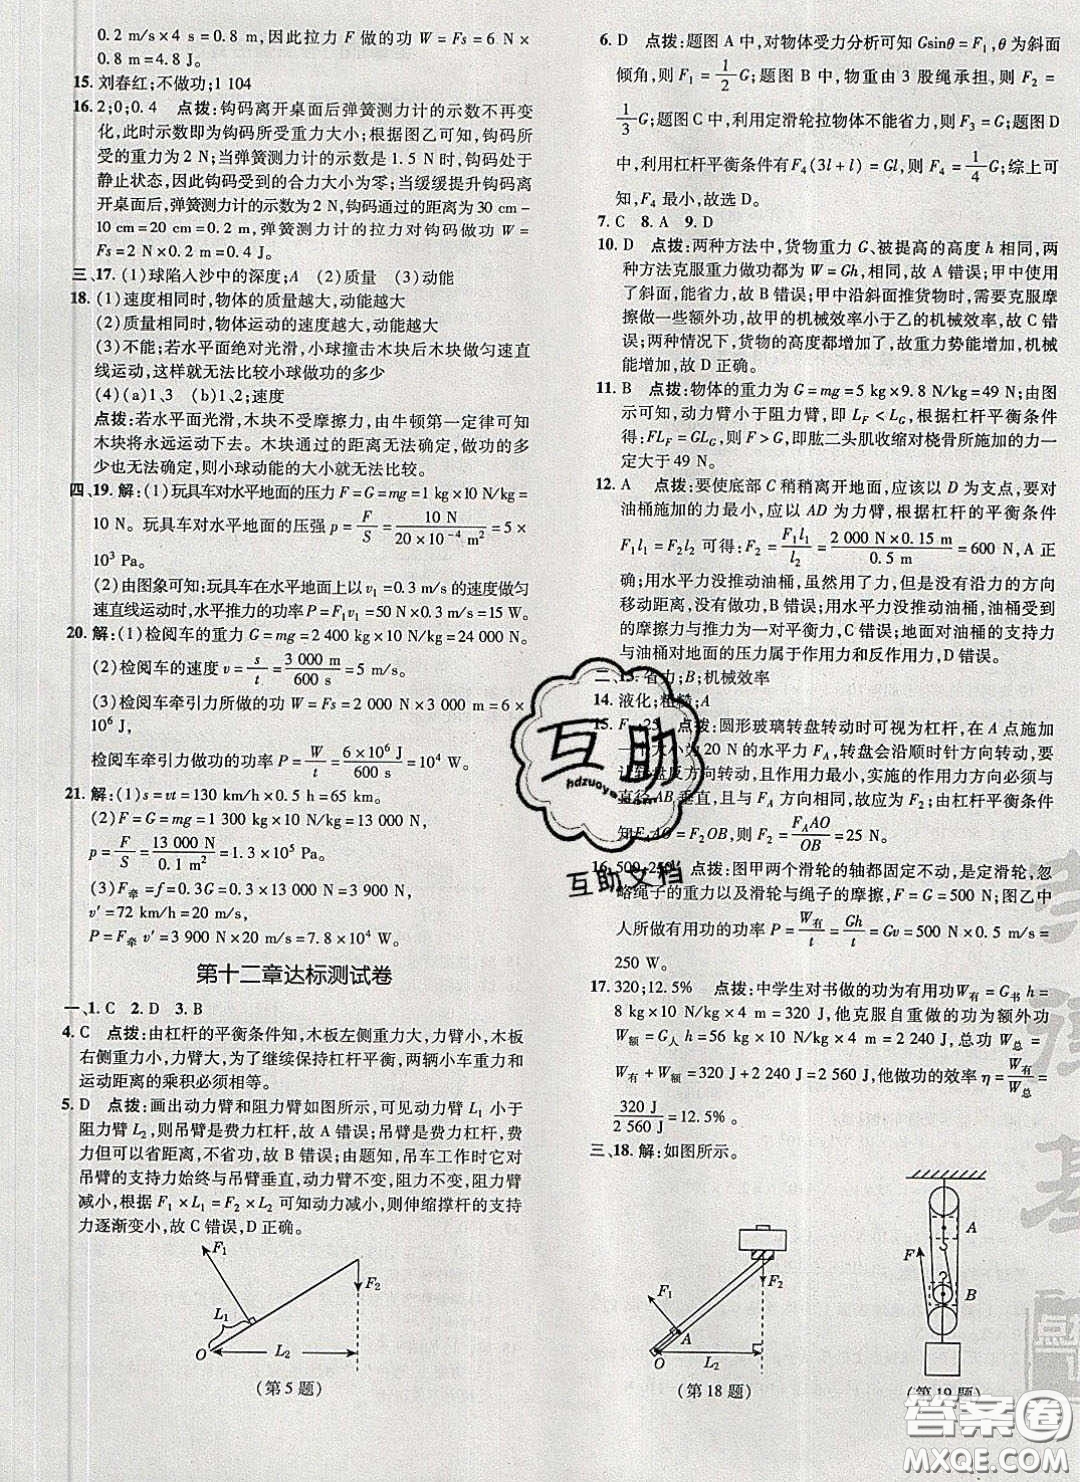 0.2 m/s×4 s=0.8 m,因此拉力 F 做的功 W=Fs=6 N×
0.8 m=4.8 J。
15. 刘春红;不做功;1 104
16. 2;0;0.4 点拨:钩码离开桌面后弹簧测力计的示数不再变
化,此时示数即为钩码所受重力大小;根据图乙可知,钩码所
受的重力为 2 N;当弹簧测力计的示数是 1.5 N时,钩码处于
静止状态,因此钩码受到的合力大小为零;当缓缓提升钩码离
开桌面后,弹簧测力计的示数为 2 N,钩码通过的距离为 30 cm-
10 cm=20 cm=0.2 m,弹簧测力计的拉力对钩码做功 W=
Fs=2 N×0.2 m=0.4 J。
三、17. (1)球陷入沙中的深度;A (2)质量 (3)动能
18. (1)速度相同时,物体的质量越大,动能越大
(2)质量相同时,物体运动的速度越大,动能越大
(3)不能;若水平面光滑,小球撞击木块后木块做匀速直
线运动,这样就无法比较小球做功的多少
(4)(a)1、3 (b)1、2;速度
点拨:若水平面光滑,木块不受摩擦力,由牛顿第一定律可知
木块将永远运动下去。木块通过的距离无法确定,做功的多
少也无法确定,则小球动能的大小就无法比较。
四、19. 解:(1)玩具车对水平地面的压力 F=G=mg=1 kg×10 N/kg=
10 N。玩具车对水平地面的压强 p=F/S=10 N/(20×10⁻⁴ m²)=5×
10³ Pa。
(2)由图象可知:玩具车在水平地面上以 v₁=0.3 m/s的速度做匀
速直线运动时,水平推力的功率 P=F₁v₁=50 N×0.3 m/s=15 W。
20. 解:(1)检阅车的重力 G=mg=2 400 kg×10 N/kg=24 000 N。
(2)检阅车的速度 v=s/t=3 000 m/600 s=5 m/s。
(3)检阅车牵引力所做的功 W=Fs=2 000 N×3 000 m=6×
10⁶ J,
检阅车牵引力做功的功率 P=W/t=6×10⁶ J/600 s=10⁴ W。
21. 解:(1)s=vt=130 km/h×0.5 h=65 km。
(2)F=G=mg=1 300 kg×10 N/kg=13 000 N,
p=F/S=13 000 N/0.1 m²=1.3×10⁵ Pa。
(3)F牵=f=0.3G=0.3×13 000 N=3 900 N,
v′=72 km/h=20 m/s,
P=F牵 v′=3 900 N×20 m/s=7.8×10⁴ W。
第十二章达标测试卷
一、1. C 2. D 3. B
4. C 点拨:由杠杆的平衡条件知,木板左侧重力大,力臂小,木板
右侧重力小,力臂大,为了继续保持杠杆平衡,两辆小车重力和
运动距离的乘积必须相等。
5. D 点拨:画出动力臂和阻力臂如图所示,可见动力臂 L₁ 小于
阻力臂 L₂,则吊臂是费力杠杆,故 A 错误;吊臂是费力杠杆,费
力但可以省距离,不省功,故 B 错误;由题知,吊车工作时它对
吊臂的支持力始终与吊臂垂直,动力臂不变,阻力不变,阻力臂
减小,根据 F₁×L₁=F₂×L₂ 可知动力减小,则伸缩撑杆的支持
力逐渐变小,故 C 错误,D 正确。
F₁
F₂
L₁
O
L₂
(第 5 题)
6. D 点拨:题图 A 中,对物体受力分析可知 Gsinθ=F₁,θ为斜面
倾角,F₁=1/2 G;题图 B 中,物重由 3 股绳承担,则 F₂=
1/3 G;题图 C 中,利用定滑轮拉物体不能省力,则 F₃=G;题图 D
中,利用杠杆平衡条件有 F₄(3l+l)=Gl,则 F₄=1/4 G;综上可
知,F₄ 最小,故选 D。
7. C 8. A 9. D
10. D 点拨:两种方法中,货物重力 G、被提高的高度 h 相同,两
种方法克服重力做功都为 W=Gh,故 A 错误;甲中使用
了斜面,能省力,故 B 错误;甲中沿斜面推货物时,需要克服摩
擦做一些额外功,故甲的机械效率小于乙的机械效率,故 C 错
误;两种情况下,货物的高度都增加了,故重力势能增加,机械
能增加,故 D 正确。
11. B 点拨:物体的重力为 G=mg=5 kg×9.8 N/kg=49 N;由图
示可知,动力臂小于阻力臂,即 L_F<L_G,根据杠杆平衡条件
得:FL_F=GL_G,则 F>G,即肱二头肌收缩对桡骨所施加的力一
定大于 49 N。
12. A 点拨:要使底部 C 稍稍离开地面,应该以 D 为支点,要对
油桶施加的力最小,应以 AD 为力臂,根据杠杆的平衡条件
F₁l₁=F₂l₂ 可得:F₂=F₁l₁/l₂=2 000 N×0.15 m/0.5 m=600 N,A 正
确;用水平力没推动油桶,虽然用了力,但是没有沿力的方向
移动距离,没有做功,B 错误;用水平力没推动油桶,油桶受到
的摩擦力与推力为一对平衡力,C 错误;地面对油桶的支持力
与油桶对地面的压力属于作用力和反作用力,D 错误。
二、13. 省力;B;机械效率
14. 液化;粗糙;A
15. F₂;25 点拨:圆形玻璃转盘转动时可视为杠杆,在 A 点施加
一个大小为 20 N 的水平力 F_A,转盘会沿顺时针方向转动,要
让转盘反方向转动,且作用力最小,实施的作用力方向必须与
直径 AB 垂直,且与 F_A 方向相同,故应为 F₂;由杠杆平衡条件
知 F_A AO=F₂OB,则 F₂=F_A AO/OB=25 N。
16. 500;250 点拨:图甲两个滑轮的轴都固定不动,是定滑轮,忽
略绳子的重力以及滑轮与绳子的摩擦,F=G=500 N;图乙中
人所做有用功的功率 P=W有/t=Gh/t=Gv=500 N×0.5 m/s=
250 W。
17. 320;12.5% 点拨:中学生对书做的功为有用功W有=G书 h=
8 kg×10 N/kg×4 m=320 J,他克服自重做的功为额外功
W额=G人 h=56 kg×10 N/kg×4 m=2 240 J,总功 W总=
W有+W额=320 J+2 240 J=2 560 J,他做功的效率 η=W有/W总=
320 J/2 560 J=12.5%。
三、18. 解:如图所示。
F₁
F₂
A
O
L₂
(第 18 题)
F
A
B
(第 19 题)
互助
hdzuoye.com
互助文档
答案圈
MXQE.COM